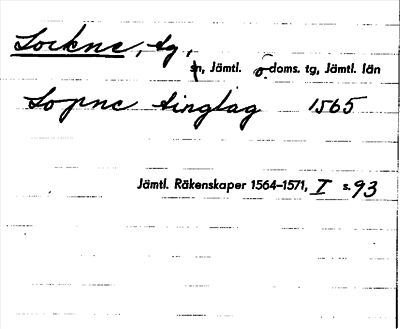 Lockne, tg,
sn, Jämtl. o. doms. tg, Jämtl. län
Lopne tinglag 1565
Jämtl. Räkenskaper 1564–1571, I s. 93